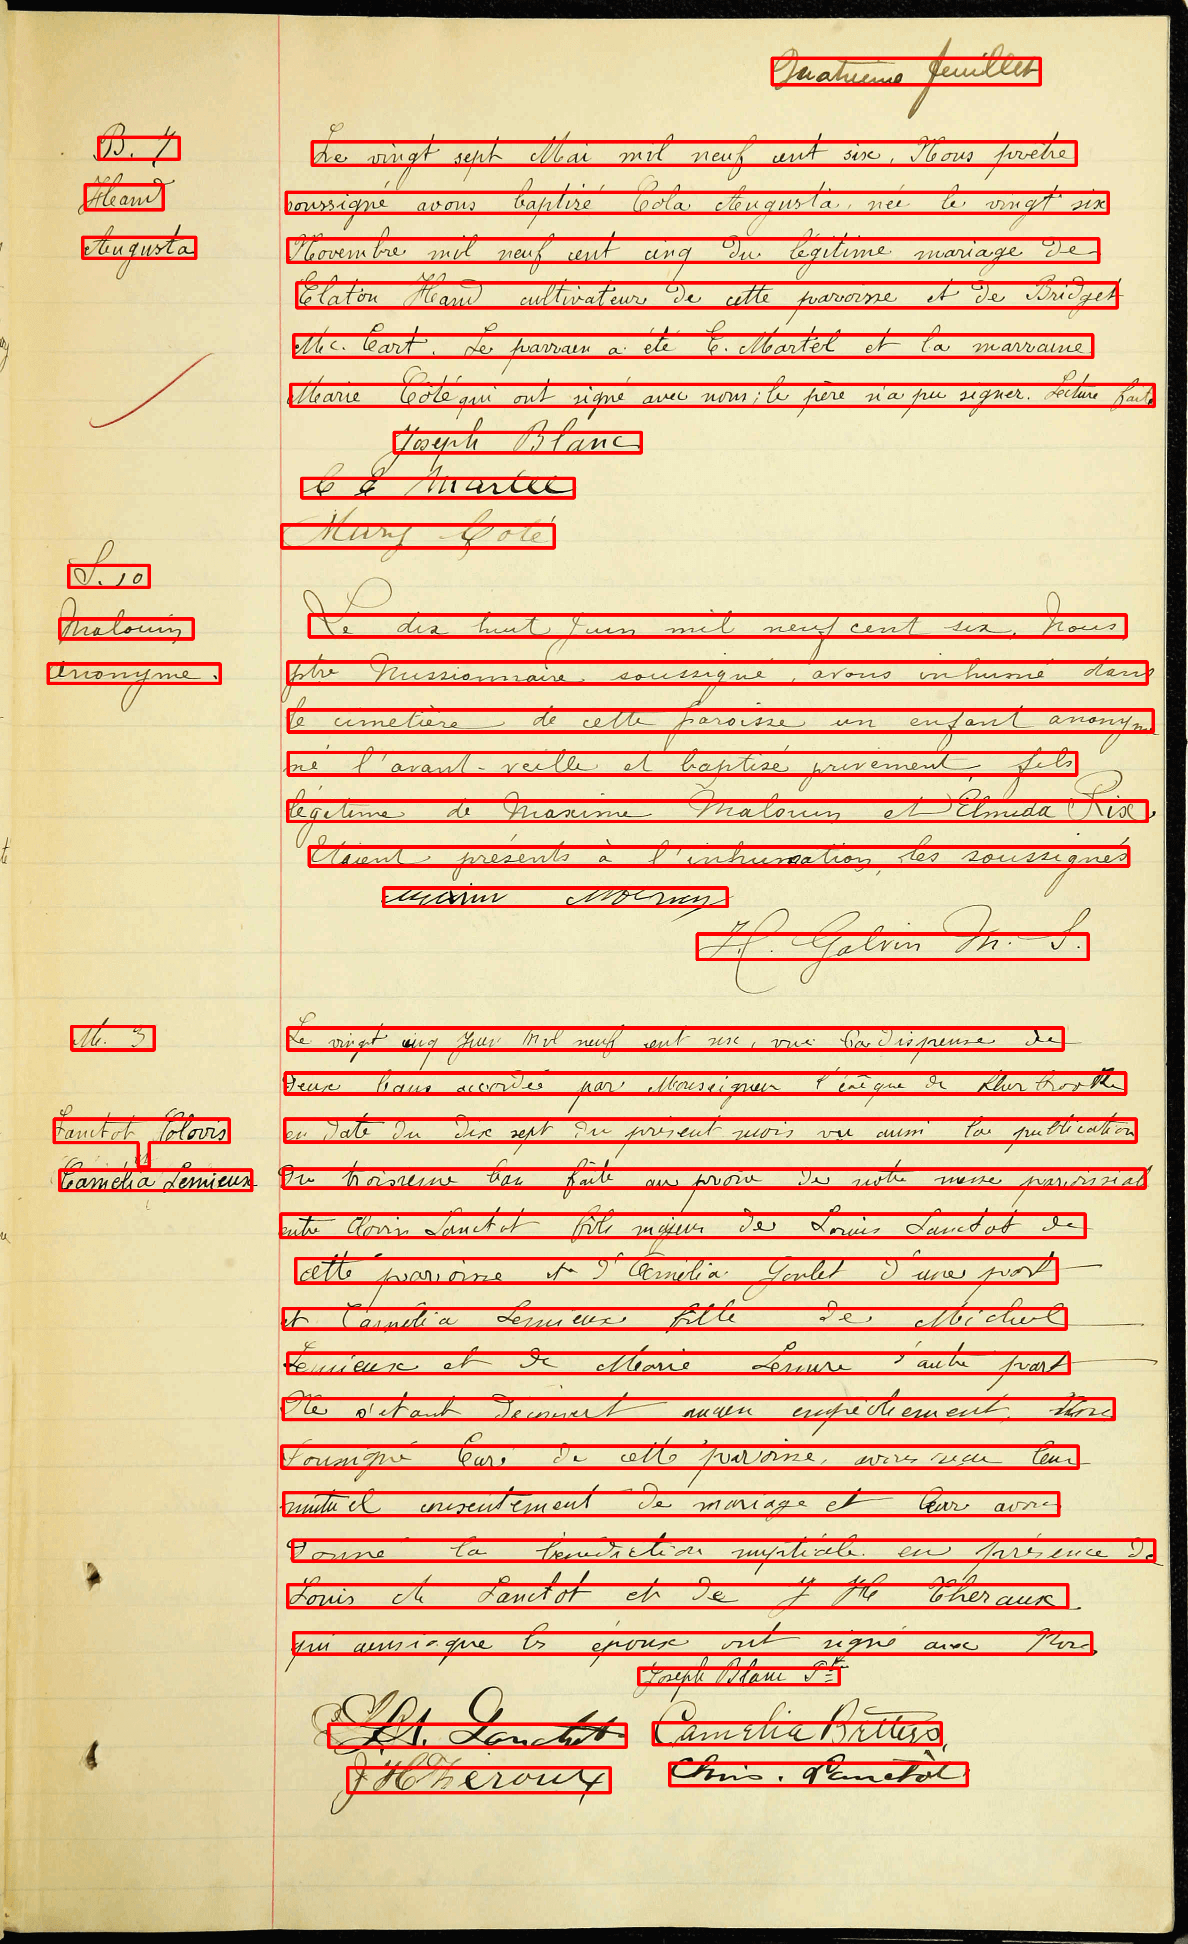 Quatrième feuillet
B. 7
Hand
Augusta
Le vingt sept Mai mil neuf cent six, Nous prêtre
soussigné avons baptisé Cola Augusta, née le vingt six
Novembre mil neuf cent cinq du légitime mariage de
Claton Hand cultivateur de cette paroisse et de Bridget
Mc. Cart. Le parrain a été C. Martel et la marraine
Marie Côté qui ont signé avec nous; le père n'a pu signer. Lecture faite
Joseph Blanc
C E Martel
Mary Coté
S. 10
Malouin
Anonyme.
Le dix huit Juin mil neuf cent six, Nous
ptre Missionnaire soussigné, avons inhumé dans
le cimetière de cette paroisse un enfant anonyme
né l'avant-veille et baptisé privément fils
légitime de Maxime Malouin et Elmida Rix.
Etaient présents à l'inhumation, les soussignés
H. Galvin M. S.
M. 3
Lanctot Clovis
et
Camélia Lemieux
Le vingt cinq Juin mil neuf cent six, vu la dispense de
deux bans accordée par Monseigneur l'évêque de Sherbrooke
en date du dix sept du présent mois vu aussi la publication
du troisième ban faite au prône de notre messe paroissial
entre Clovis Lanctot fils majeur de Louis Lanctot de
cette paroisse et d'Amelia Goulet d'une part
et Camélia Lemieux fille de Michel
Lemieux et de Marie Lemire d'autre part
Ne s'étant découvert aucun empêchement, Nous
soussigné Curé de cette paroisse, avons reçu leur
mutuel consentement de mariage et leur avons
donné la bénédiction nuptiale en présence de
Louis A Lanctot et de J H Theroux
qui ainsi que les époux ont signé avec Nous
Joseph Blanc Ptre
L. A. Lanctot Camelia Bitters,
J H Theroux Chvis. Lanctôt